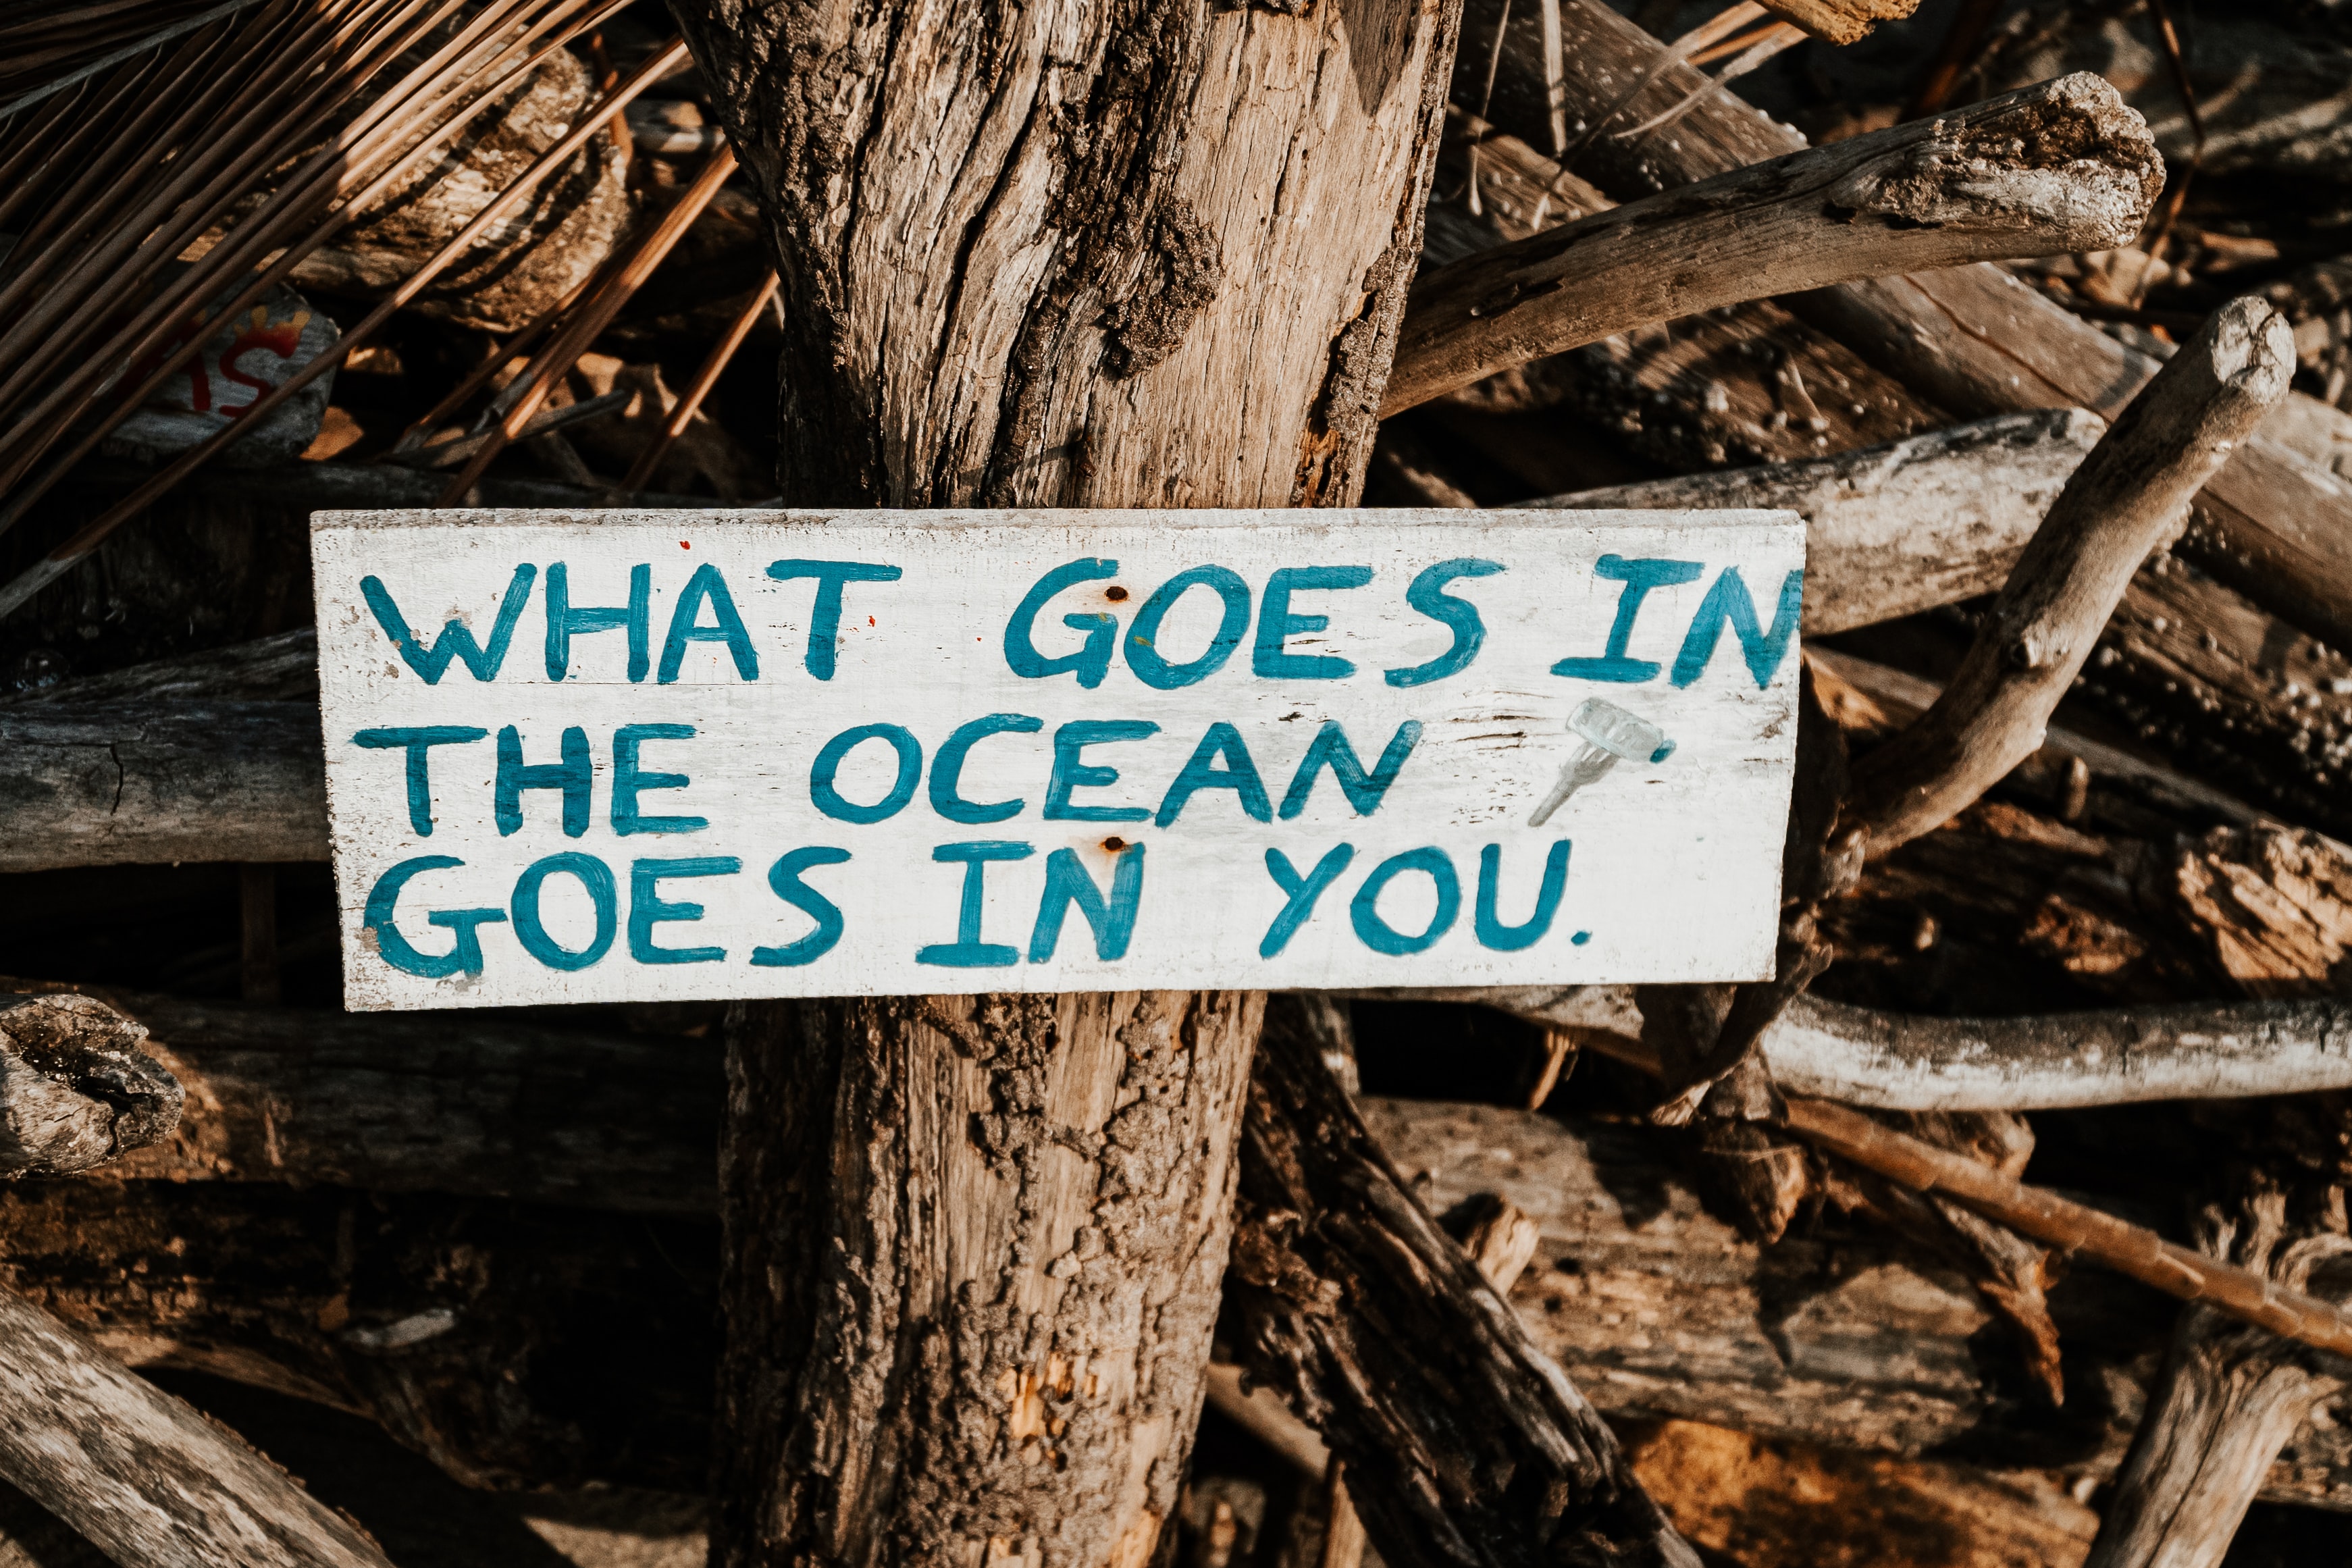 WHAT GOES IN
THE OCEAN
GOES IN YOU.